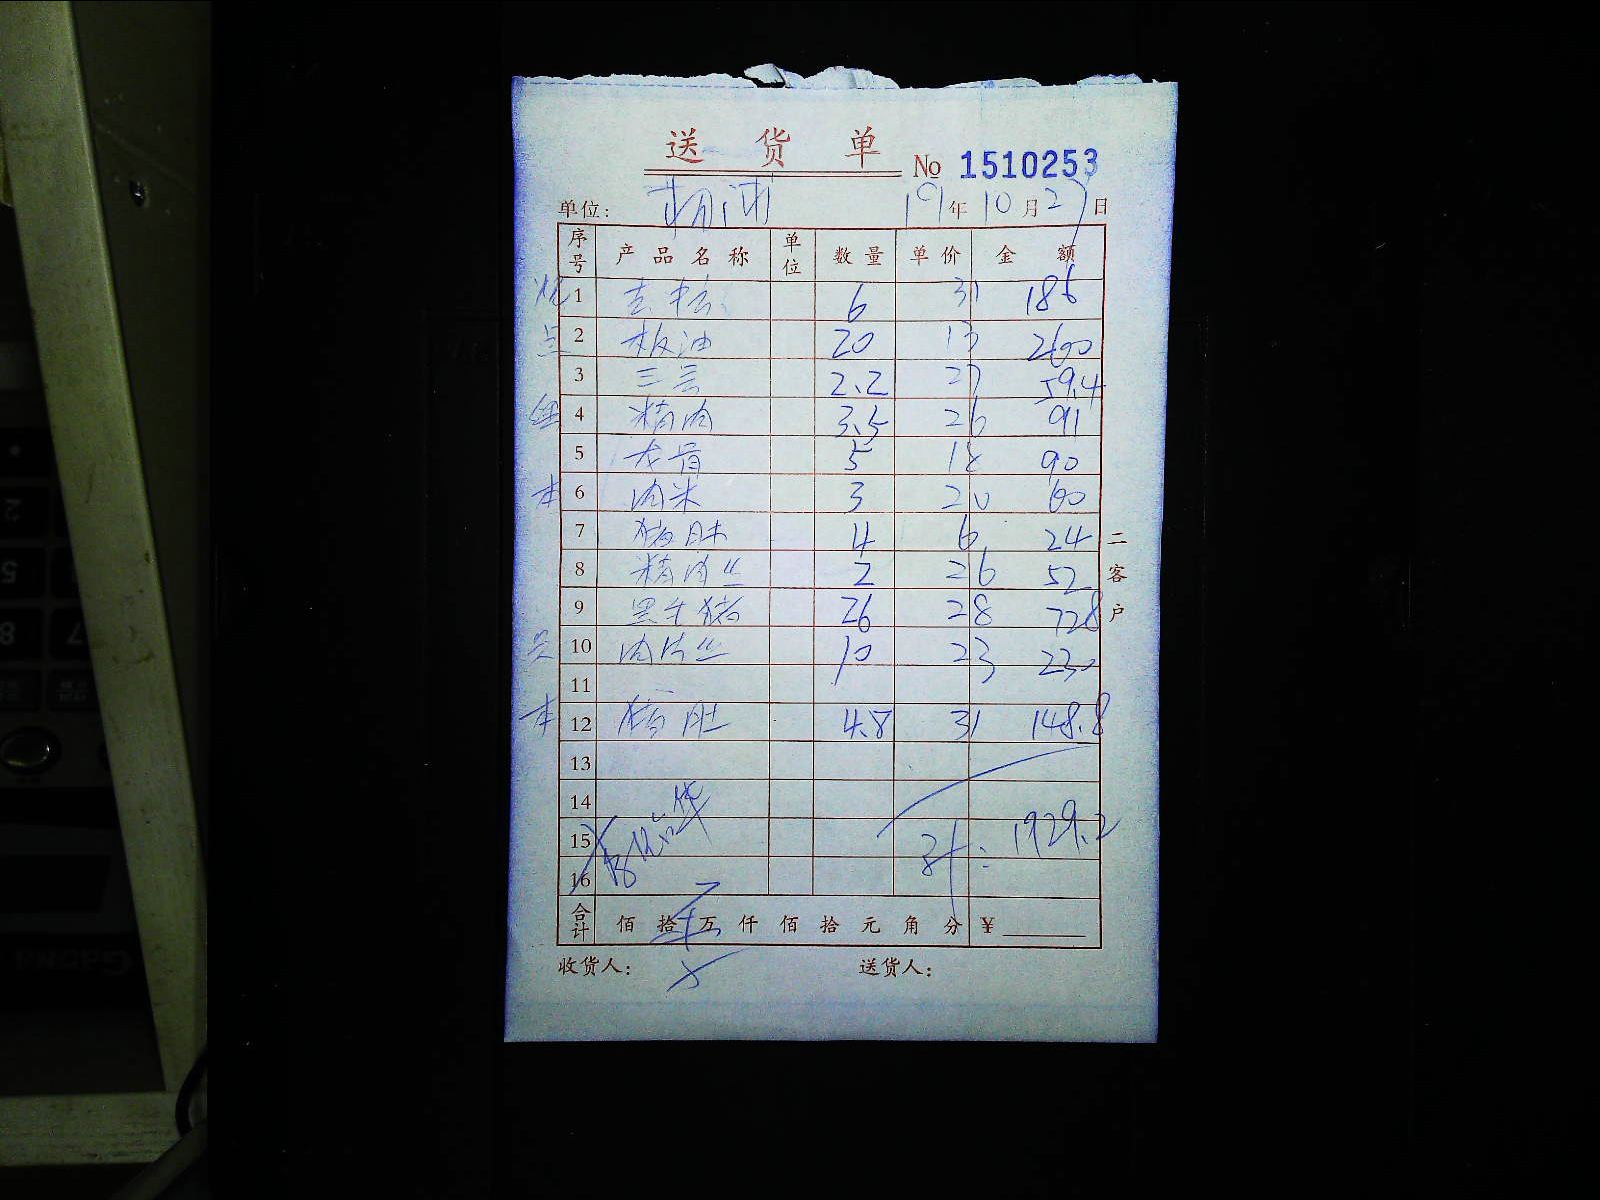 送 货 单
No 1510253
单位: 杨浦 19年10月27日
序号 产品名称 单位 数量 单价 金额
1 6 31 186
点 2 板油 20 13 260
3 2.2 27 59.4
4 精肉 3.5 26 91
5 龙骨 5 18 90
本 6 肉米 3 20 60
7 猪肚 4 6 24
8 精肉丝 2 26 52
9 黑毛猪 26 28 728
10 肉片丝 10 23 230
11
本 12 猪肚 4.8 31 148.8
13
14
15 计: 1929.2
16
合计 佰拾万仟佰拾元角分 ¥
收货人: 送货人:
二客户